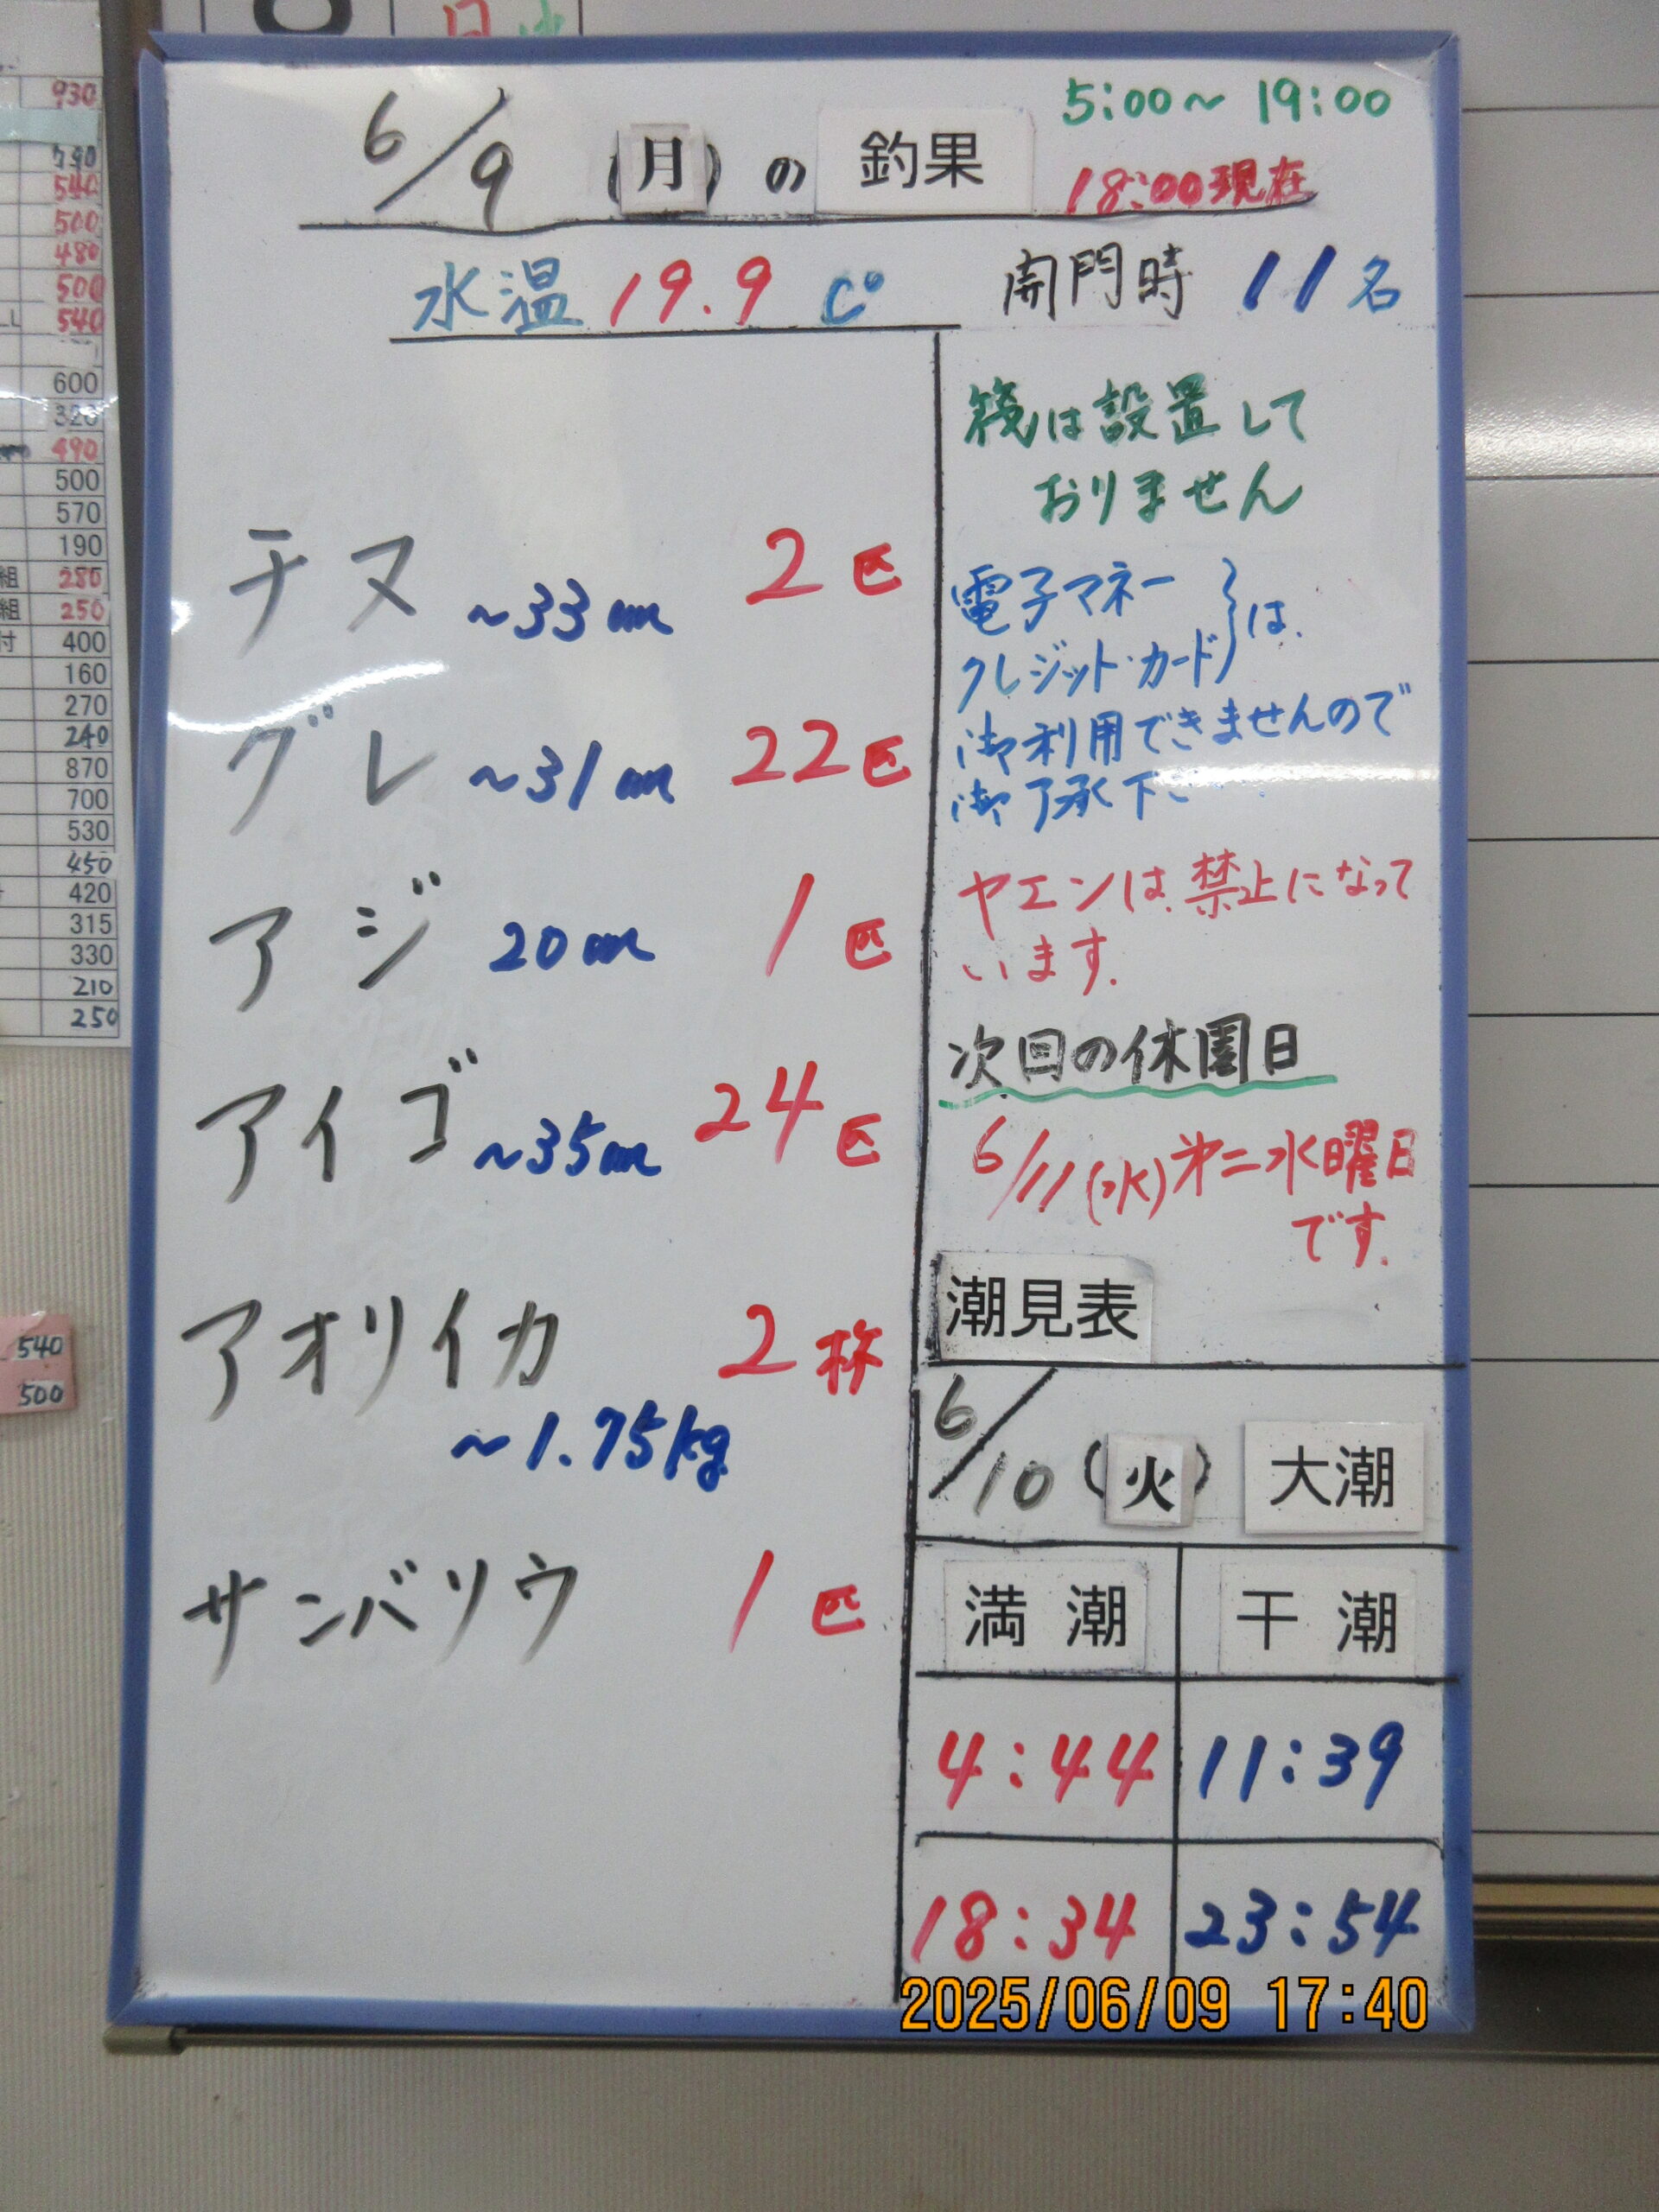 5:00~19:00
6/9(月)の釣果
18:00現在
水温 19.9 C°
開門時 11名
チヌ ~33cm 2匹
グレ ~31cm 22匹
アジ 20cm 1匹
アイゴ ~35cm 24匹
アオリイカ 2杯
~1.75kg
サンバソウ 1匹
筏は設置して
おりません
電子マネー
クレジット・カード}は、
御利用できませんので
御了承下
ヤエンは、禁止になって
います。
次回の休園日
6/11(水)第二水曜日
です。
潮見表
6/10(火) 大潮
満潮 干潮
4:44 11:39
18:34 23:54
2025/06/09 17:40
930
540
500
480
500
540
600
320
490
500
570
190
組 280
組 250
付 400
160
270
240
870
700
530
450
420
315
330
210
250
540
500